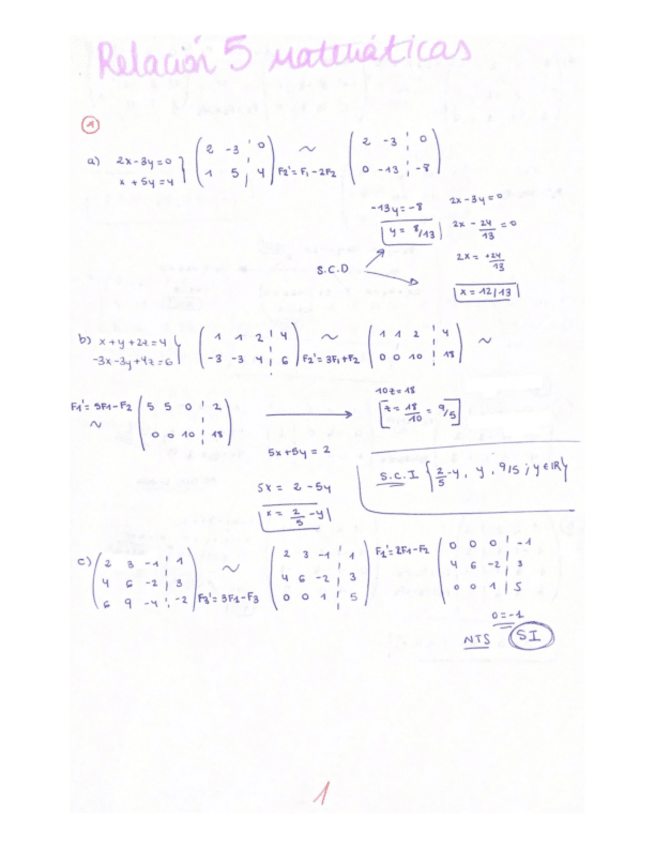 Relación 5 matemáticas
1
a) 2x-3y=0
x + 5y = 4
2 -3 | 0
1 5 | 4
~
F2'= F1-2F2
2 -3 | 0
0 -13 | -8
-13y = -8
y = 8/13
2x-3y=0
2x - 24/13 = 0
2x = +24/13
x = 12/13
S.C.D
b) x+y+2z=4
-3x-3y+4z=6
1 1 2 | 4
-3 -3 4 | 6
~
F2'=3F1+F2
1 1 2 | 4
0 0 10 | 18
~
F1'= 5F1-F2
~
5 5 0 | 2
0 0 10 | 18
10z=18
z = 18/10 = 9/5
5x+5y = 2
5x = 2 - 5y
x = 2/5 - y
S.C.I {2/5-y, y, 9/5; y∈IR}
c) 2 3 -1 | 1
4 6 -2 | 3
6 9 -4 | -2
~
F3'= 3F1-F3
2 3 -1 | 1
4 6 -2 | 3
0 0 1 | 5
F1'=2F1-F2
0 0 0 | -1
4 6 -2 | 3
0 0 1 | 5
0=-1
NTS SI
1